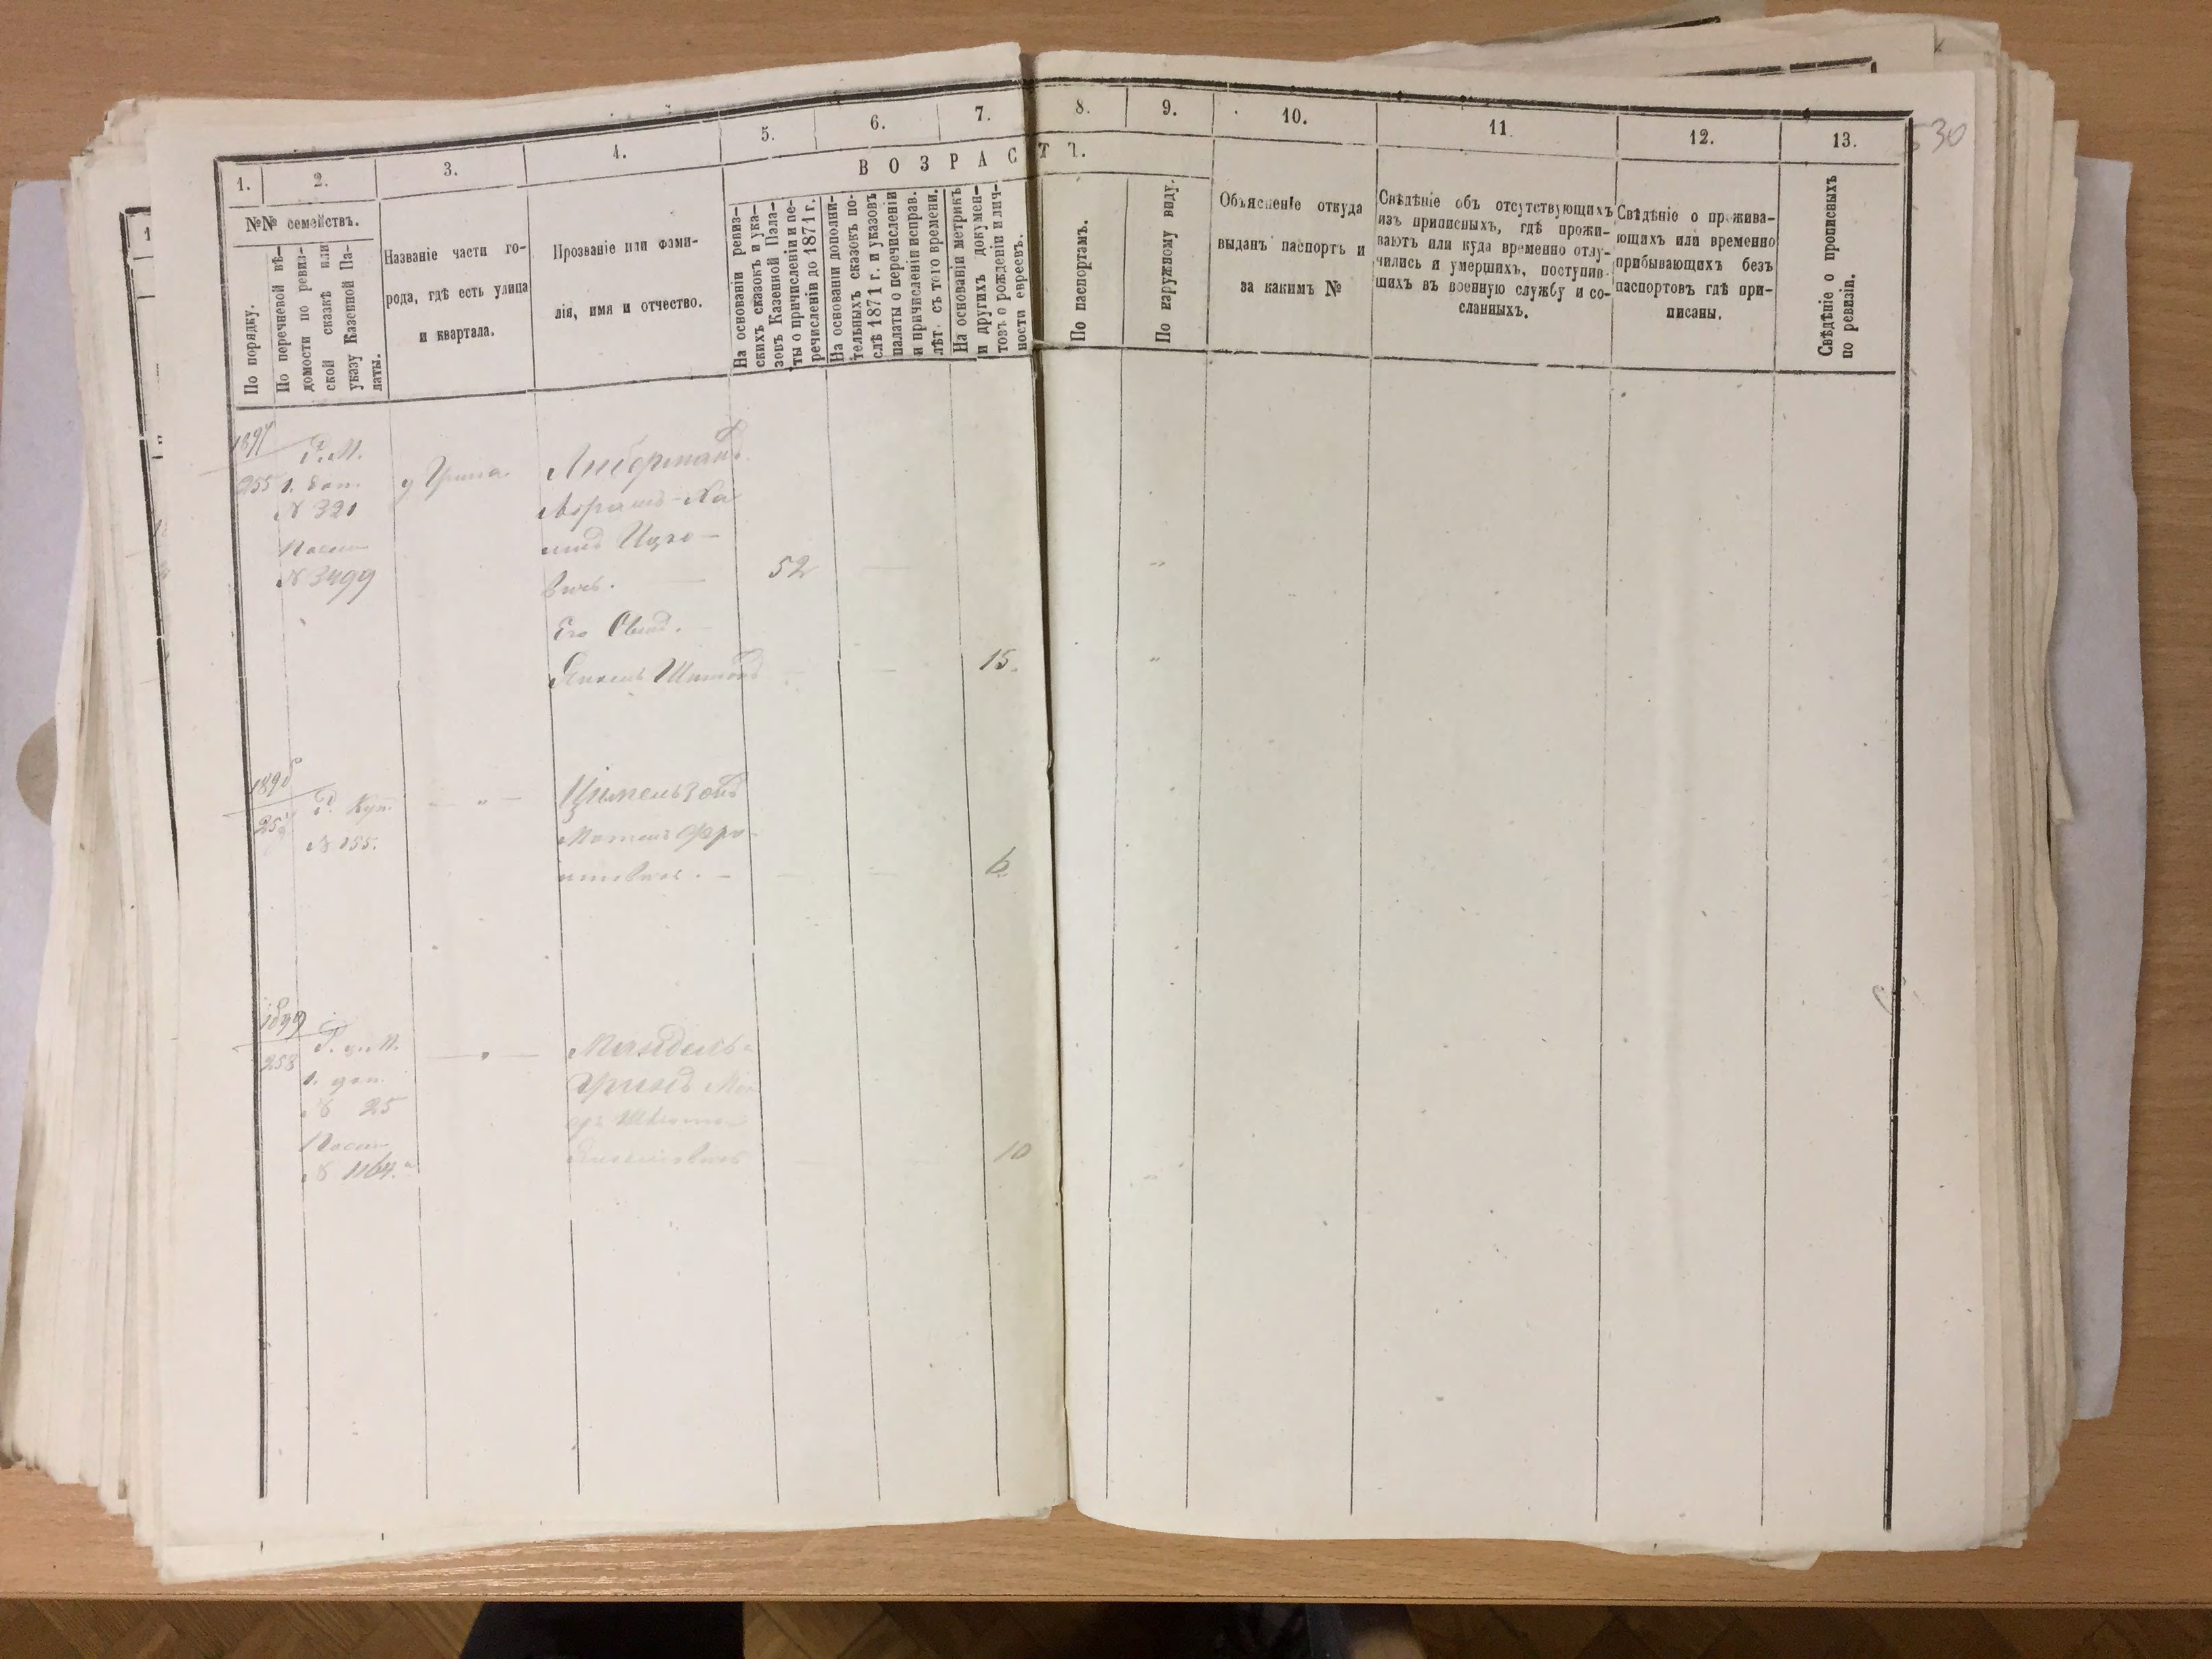 1.
2.
3.
4.
5.
6.
7.
8.
9.
10.
11.
12.
13.
530
ВОЗРАСТЪ.
№№ семействъ.
По порядку.
По перечневой вѣ-
домости по ревиз-
ской сказкѣ или
указу Казенной Па-
латы.
Названіе части го-
рода, гдѣ есть улица
и квартала.
Прозваніе или фами-
лія, имя и отчество.
На основаніи ревиз-
скихъ сказокъ и ука-
зовъ Казенной Пала-
ты о причисленіи и пе-
речисленіи до 1871 г.
На основаніи дополни-
тельныхъ сказокъ по-
слѣ 1871 г. и указовъ
палаты о перечисленіи
и причисленіи исправ.
лѣт. съ того времени.
На основаніи метрикъ
и другихъ докумен-
товъ о рожденіи и лич-
ности евреевъ.
По паспортамъ.
По наружному виду.
Объясненіе откуда
выданъ паспортъ и
за какимъ №
Свѣдѣніе объ отсутствующихъ
изъ приписныхъ, гдѣ прожи-
ваютъ или куда временно отлу-
чились и умершихъ, поступив-
шихъ въ военную службу и со-
сланныхъ.
Свѣдѣніе о прожива-
ющихъ или временно
прибывающихъ безъ
паспортовъ гдѣ при-
писаны.
Свѣдѣніе о прописныхъ
по ревизіи.
1897
255
1. доп.
№ 321
№ 3499
Либерманъ
Абрамъ-Ха
имъ
вичъ.
52
Его
15.
1898
Куп.
№ 155.
6
1899
258
1. доп.
№ 25
№ 1164.
Мандель-
10